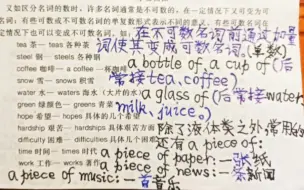 又如区分名词的数时，许多名词通常是不可数的，在一定情况下又可变为可
名词；有些可数或不可数名词的单复数形式表示不同的意义；有些可数名词在
定情况下也可以变成不可数名词，如： 在不可数名词前通过加量
tea 茶— teas 各种茶 词使其变成可数名词。(单数)
steel 钢— steels 各种钢 a bottle of, a cup of (后
coffee 咖啡— a coffee 一杯咖 常接tea、coffee)
snow 雪— snows 积雪
water 水— waters 海水（大片的水） a glass of (后常接water
green 绿颜色— greens 青菜 milk、juice。)
hope 希望— hopes 具体的几个希望
hardship 艰苦— hardships 具体艰苦方面 除了液体类之外常用的
difficulty 困难— difficulties 具体几个困难 还有a piece of:
time 时间— times 时代 a piece of paper: 一张纸
work 工作— works 著作 a piece of news: 一条新闻
a piece of music: 一首音乐